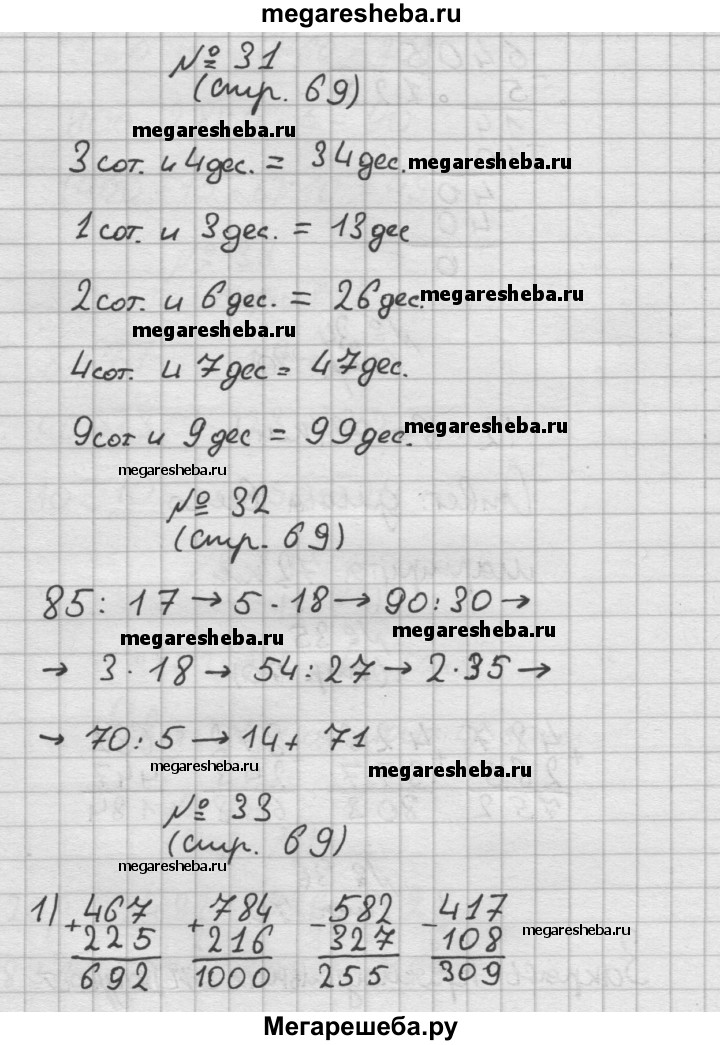 megaresheba.ru
№ 31
(стр. 69)
megaresheba.ru
3 сот. и 4 дес. = 34 дес. megaresheba.ru
1 сот. и 3 дес. = 13 дес
2 сот. и 6 дес. = 26 дес. megaresheba.ru
megaresheba.ru
4 сот. и 7 дес = 47 дес.
9 сот и 9 дес = 99 дес. megaresheba.ru
megaresheba.ru
№ 32
(стр. 69)
85 : 17 → 5 · 18 → 90 : 30 →
megaresheba.ru megaresheba.ru
→ 3 · 18 → 54 : 27 → 2 · 35 →
→ 70 : 5 → 14 + 71
megaresheba.ru megaresheba.ru
№ 33
(стр. 69)
megaresheba.ru
1) + 467 + 784 - 582 - 417
225 216 327 108 megaresheba.ru
692 1000 255 309
Мегарешеба.ру